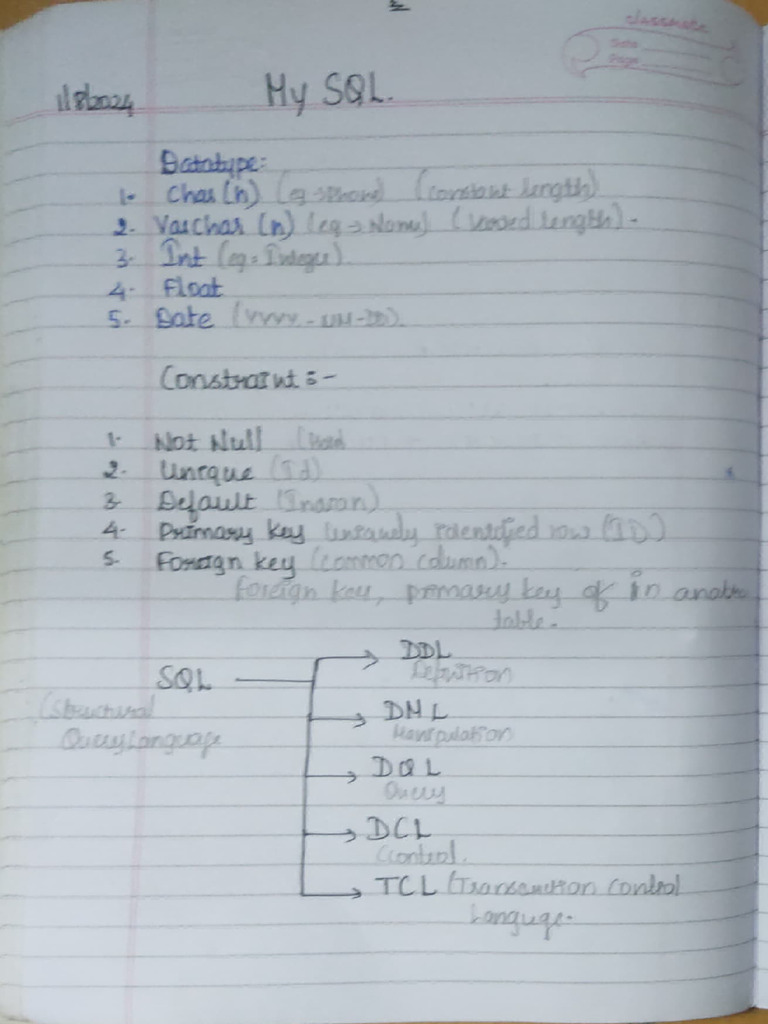 classmate
Date
Page
1/8/2024
My SQL.
Datatype:
1- Char(n) (eg → Phone) (constant length)
2. Varchar (n) (eg → Name) (Varied length) -
3. Int (eg = Integer)
4. Float
5. Date (YYYY-MM-DD)
Constraint :-
1. Not Null
2. Unique (Id)
3. Default
4. Primary Key (uniquely identified row (ID)
5. Foreign key (common column).
foreign key, primary key of in another
table.
SQL
(Structural
Query Language
DDL
Definition
DML
Manipulation
DQL
Query
DCL
(Control.
TCL (Transanction control
Languge.